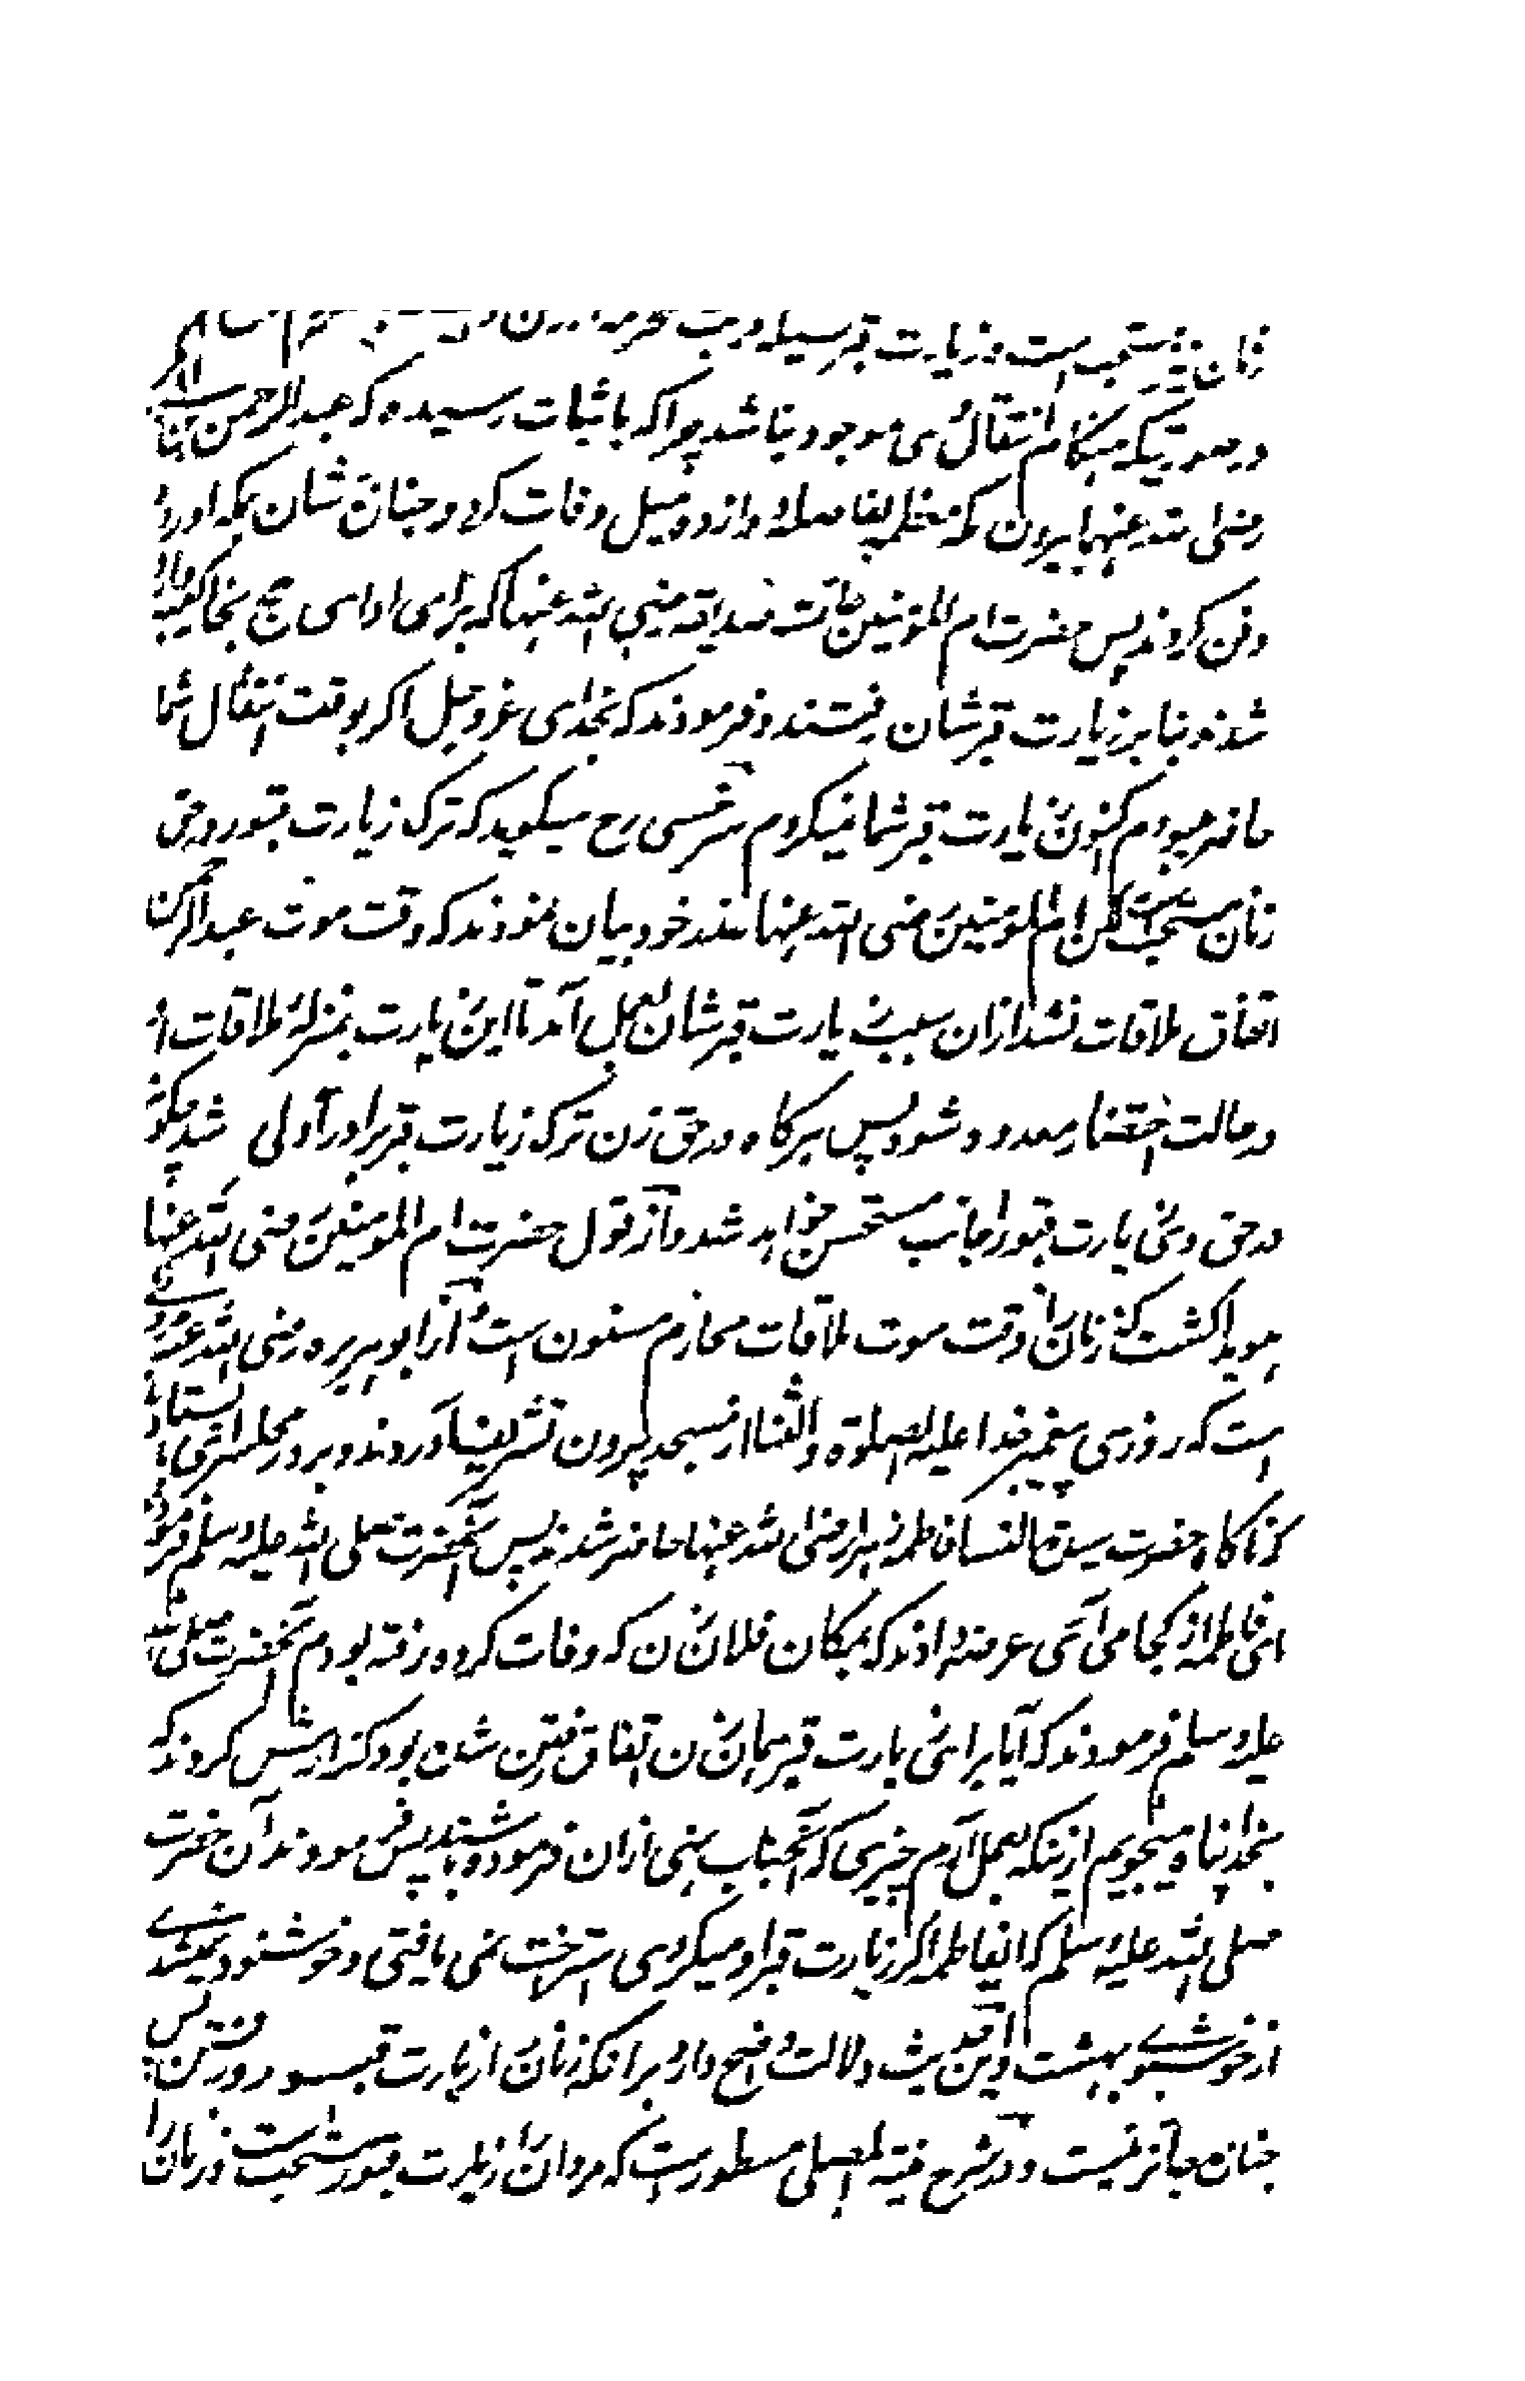 زنان نیز مستحب است و زیارت قبر
در صورتیکه هنگام انتقال وی موجود نباشد چرا که باثبات رسیده که عبد الرحمن بن ابی بکر
رضی الله عنهما بیرون مکه معظمه بفاصله دوازده میل وفات کرد و جنازه شان بمکه آورده
دفن کردند پس حضرت ام المؤمنین عائشه صدیقه رضی الله عنها که برای ادای حج بخاکعبه وارد
شدند بنا بر زیارت قبر شان رفتند و فرمودند که بخدای عز و جل اگر بوقت انتقال شما
حاضر میبودم کنون زیارت قبر شما نمیکردم سرخسی رح میگوید که ترک زیارت قبور در حق
زنان مستحب است لکن ام المومنین رضی الله عنها عذر خود بیان نمودند که وقت موت عبد الرحمن
اتفاق ملاقات نشد ازان سبب زیارت قبر شان بعمل آمد تا این زیارت بمنزله ملاقات او
در حالت احتضار معدود شود پس هر گاه در حق زن ترک زیارت قبر برادر اولی شد چگونه
در حق وی زیارت قبور اجانب مستحسن خواهد شد و از قول حضرت ام المومنین رضی الله عنها
هویدا گشت که زنان را وقت موت ملاقات محارم مسنون است و از ابو هریره رضی الله عنه مروی
است که روزی پیغمبر خدا علیه الصلوة و الثنا از مسجد بیرون تشریف آوردند و بر در محلسرای ایستاده
که ناگاه حضرت سیدة النسا فاطمه زهرا رضی الله عنها حاضر شدند پس آنحضرت صلی الله علیه وسلم فرمودند
ای فاطمه از کجا می آئی عرضه دادند که بمکان فلان زن که وفات کرده رفته بودم آنحضرت صلی الله
علیه و سلم فرمودند که آیا برای زیارت قبر همان زن اتفاق رفتن شده بود گذارش کردند که
بخدا پناه میجویم ازینکه بعمل آرم چیزی که آنجناب نهی ازان فرموده باشند پس فرمودند آن حضرت
صلی الله علیه وسلم که ایفاطمه اگر زیارت قبر او میکردی استراحت نمی یافتی و خوشنود نمیشدی
از خوشبوی بهشت و این حدیث دلالت واضح دارد برانکه زنان را زیارت قبور و رفتن پس
جنازه جائز نیست و در شرح منیة المصلی مسطور است که مردان را زیارت قبور مستحب است و زنان را